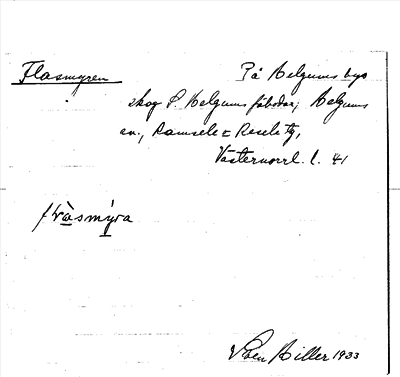 Flasmyren På Helgums bys
skog S. Helgums fäbodar, Helgums
sn, Ramsele = Resele tg,
Västernorrl. l. 41
Sven Hiller 1933